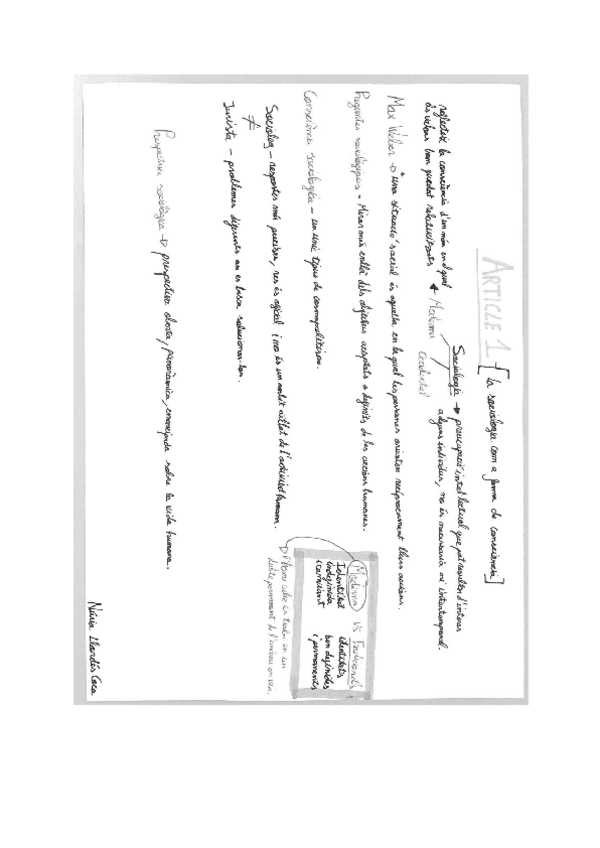 ARTICLE 1 [la sociologia com a forma de consciència]
Sociologia → preocupació intel·lectual que pot resultar d'interès
a alguns individus, no és necessària ni intemporal.
Moderna
occidental
reflecteix la consciència d'un món en el qual
els valors han quedat relativitzats
Max Weber → "una situació" social és aquella en la qual les persones orienten recíprocament llurs accions.
Preguntes sociològiques = Mirar més enllà dels objectius acceptats o definits de les accions humanes.
Consciència sociològica – un tipus de cosmopolitisme.
Sociòleg – respostes més precises, res és oficial i no és un àmbit aïllat de l'activitat humana.
≠
Jurista – problemes diferents on es busca solucionar-los.
Perspectiva sociològica → perspectiva oberta, panoràmica, emancipada sobre la vida humana.
Moderna VS Tradicionals
Identitat indefinida i canviant
identitats ben definides i permanents
es troba en un
dubte permanent de l'univers on viu.
Núria